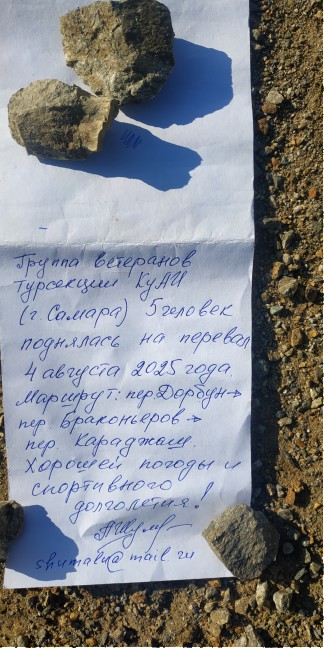 Группа ветеранов
турсекции КуАИ
(г. Самара) 5 человек
поднялась на перевал
4 августа 2025 года.
Маршрут: пер. Дорбун →
пер. Браконьеров →
пер. Караджаш.
Хорошей погоды и
спортивного
долголетия!
@mail.ru